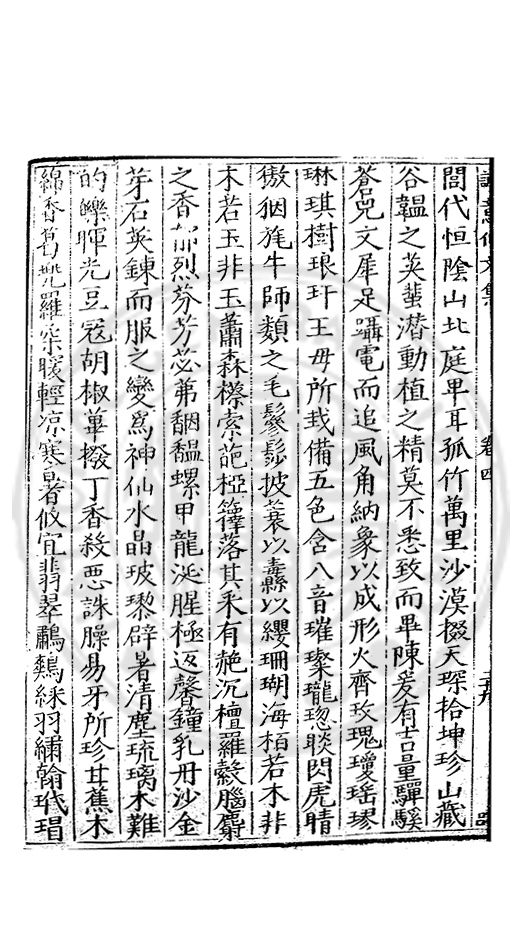 誠意伯文集 卷四
閭代恒陰山北庭卑耳孤竹萬里沙漠掇天琛拾坤珍山藏
谷韞之英蜚潜動植之精莫不悉致而畢陳爰有吉量驒騱
蒼兕文犀足躡電而追風角納象以成形火齊玫瑰瓊瑤璆
琳琪樹琅玕王母所栽備五色含八音璀璨瓏璁睒閃虎睛
㺜猖旄牛師類之毛鬖髿披蓑以纛以纓珊瑚海栢若木非
木若玉非玉蕭森櫒索葩椏籜落其釆有赩沉檀羅縠腦麝
之香郁烈芬芳苾茀馧馧螺甲龍涎腥極返馨鐘乳丹沙金
芽石英鍊而服之變爲神仙水晶玻瓈辟暑清塵琉璃木難
的皪暉光豆蔻胡椒蓽撥丁香殺惡誅臊易牙所珍甘蕉木
綿香葛兜羅柔暖輕凉寒暑攸宜翡翠鸝鷞綵羽繡翰玳瑁